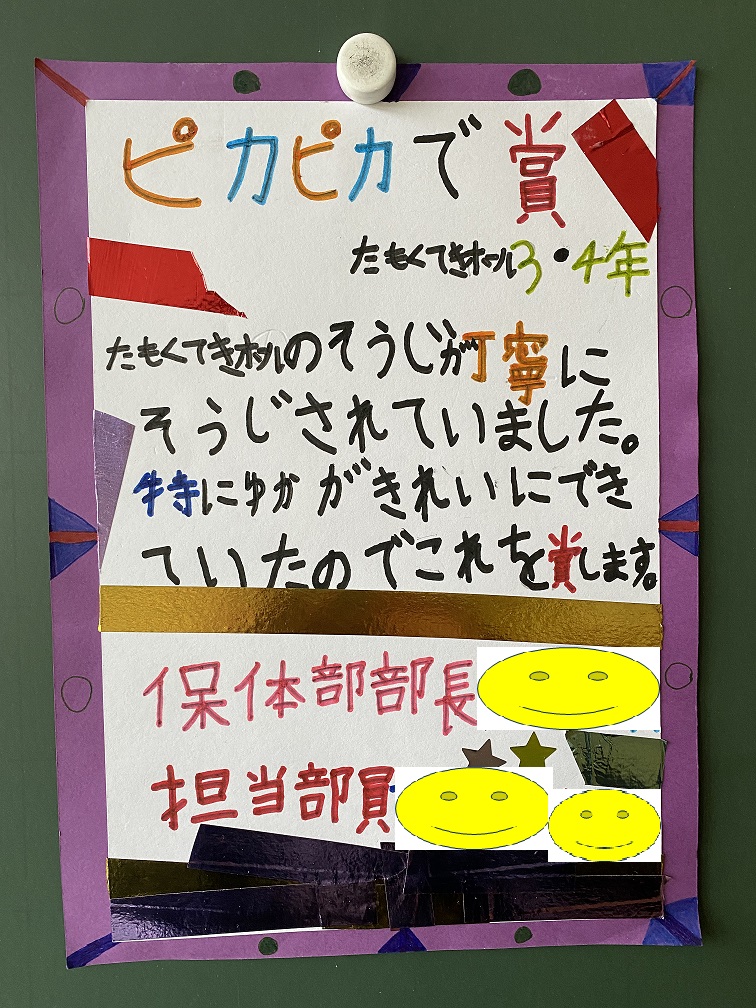 ピカピカで賞
たもくてきホール3・4年
たもくてきホールのそうじが丁寧に
そうじされていました。
特にゆかがきれいにでき
ていたのでこれを賞します。
保体部部長
担当部員